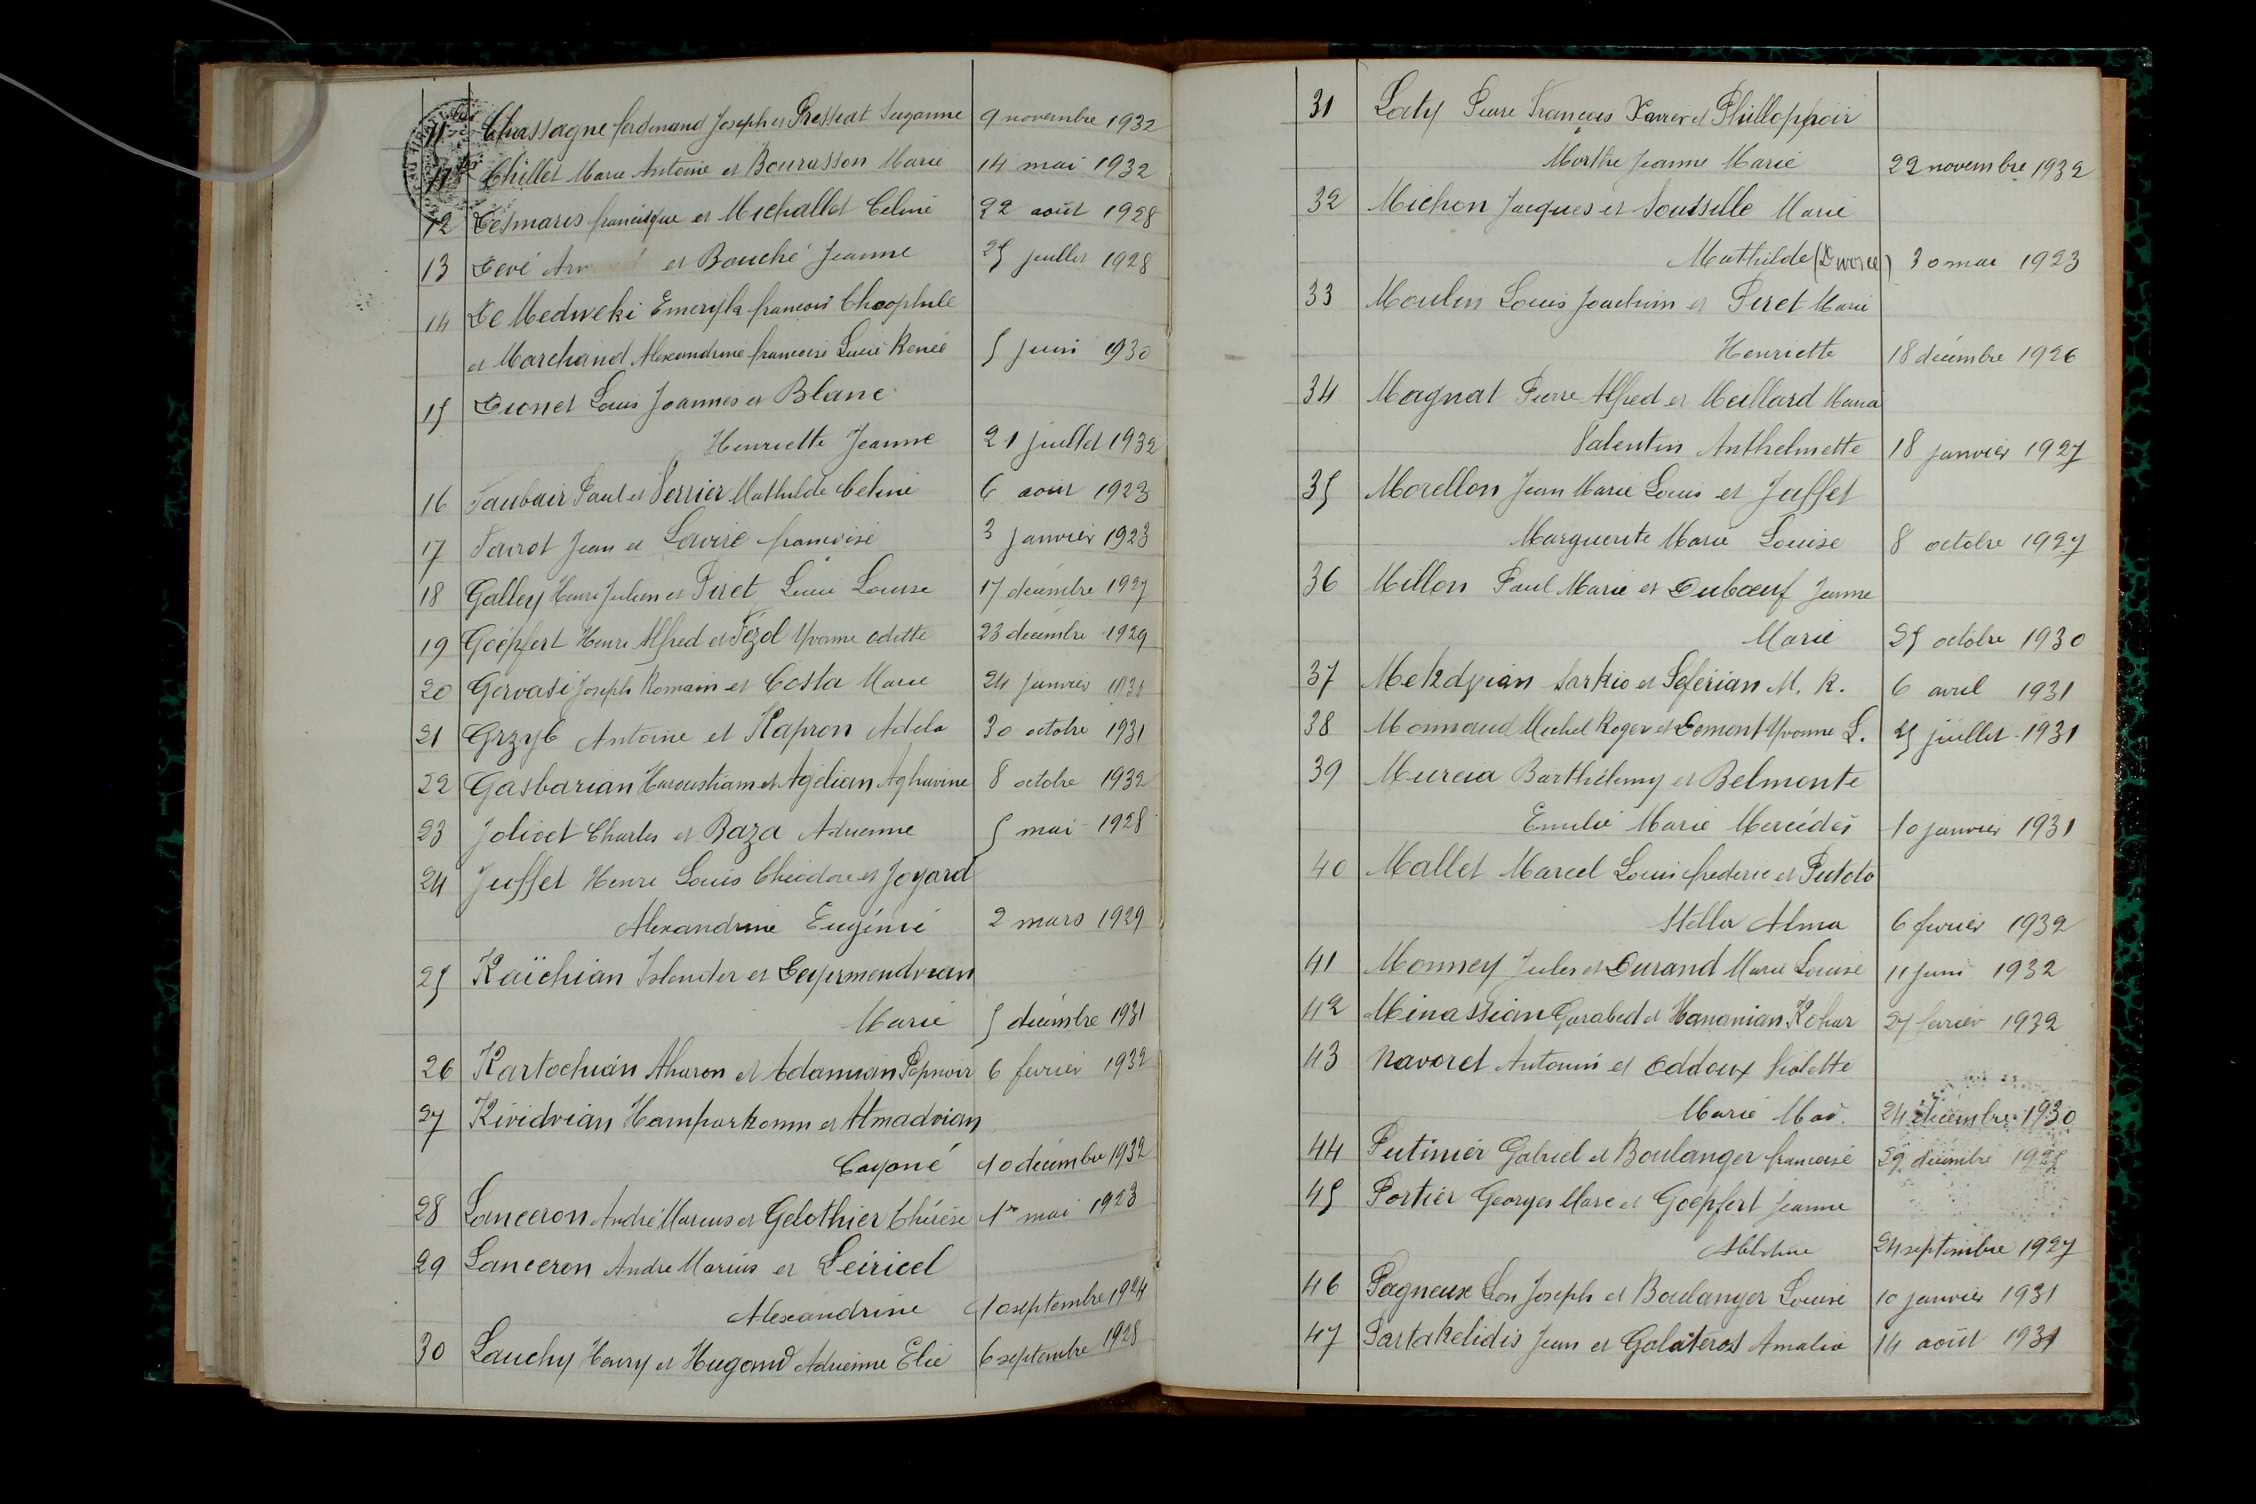 11 Chassagne ferdinand Joseph et Pressiat Suzanne 9 novembre 1932
11bis Chillet Marie Antoine et Bourasson Marie 14 mai 1932
12 Desmaris francisque et Michallet Celine 22 août 1928
13 Devé et Bouché Jeanne 25 juillet 1928
14 De Medweki francois Theophile
et Marchand Alexandrine francoise Lucie Renée 5 juin 1930
15 Dionet Louis Joannes et Blanc
Henriette Jeanne 21 juillet 1932
16 Faubair Paul et Perrier Mathilde Celine 6 août 1923
17 Favrot Jean et Lavire francoise 3 janvier 1923
18 Galley Henri Julien et Piret Lucie Louise 17 décembre 1927
19 Goepfert Henri Alfred et Fézol Yvonne odette 23 decembre 1929
20 Gervasi Joseph Romain et Costa Marie 24 janvier 1931
21 Grzyb Antoine et Kapron Adela 30 octobre 1931
22 Gasbarian Haroustiam et Agelian Aghavine 8 octobre 1932
23 Jolivet Charles et Baza Adrienne 5 mai 1928
24 Juffet Henri Louis Théodore et Joyard
Alexandrine Eugénie 2 mars 1929
25 Kaïchian Iskender et Deyermendvian
Marie 5 décembre 1931
26 Kartochian Aharon et Adamian Pepnoir 6 fevrier 1932
27 Kividvian Hamparkoum et Almadvian
Cayané 10 décembre 1932
28 Lanceron André Marius et Gelothier Thérèse 1er mai 1923
29 Lanceron André Marius et Leiricel
Alexandrine 10 septembre 1924
30 Lauchy Henry et Hugand Adrienne Elie 6 septembre 1928
31 Laty Pierre François Xavier et Philloppoir
Marthe Jeanne Marie 22 novembre 1932
32 Michon Jacques et Sousselle Marie
Mathilde (Divorce) 30 mai 1923
33 Moulin Louis Joachim et Piret Marie
Henriette 18 décembre 1926
34 Magnat Pierre Alfred et Meillard Maria
Valentin Anthelmette 18 janvier 1927
35 Morellon Jean Marie Louis et Juffet
Marguerite Marie Louise 8 octobre 1927
36 Millon Paul Marie et Dubœuf Jeanne
Marie 25 octobre 1930
37 Mekdjian Sarkis et Seférian M. R. 6 avril 1931
38 Monnaud Michel Roger et Demont Yvonne L. 25 juillet 1931
39 Murcia Barthélemy et Belmonte
Emilie Marie Mercédès 10 janvier 1931
40 Mallet Marcel Louis frederic et Putoto
Stella Alma 6 fevrier 1932
41 Monney Jules et Durand Marie Louise 11 Juin 1932
42 Minassian Garabed et Hananian Kohar 27 fevrier 1932
43 Navoret Antonin et Oddoux Violette
Marie Mad. 24 décembre 1930
44 Putinier Gabriel et Boulanger francoise 29 décembre
45 Portier Georges Marc et Goepfert Jeanne
24 septembre 1927
46 Pagneux Léon Joseph et Boulanger Louise 10 janvier 1931
47 Partakelidis Jean et Galateros Amalia 14 août 1931